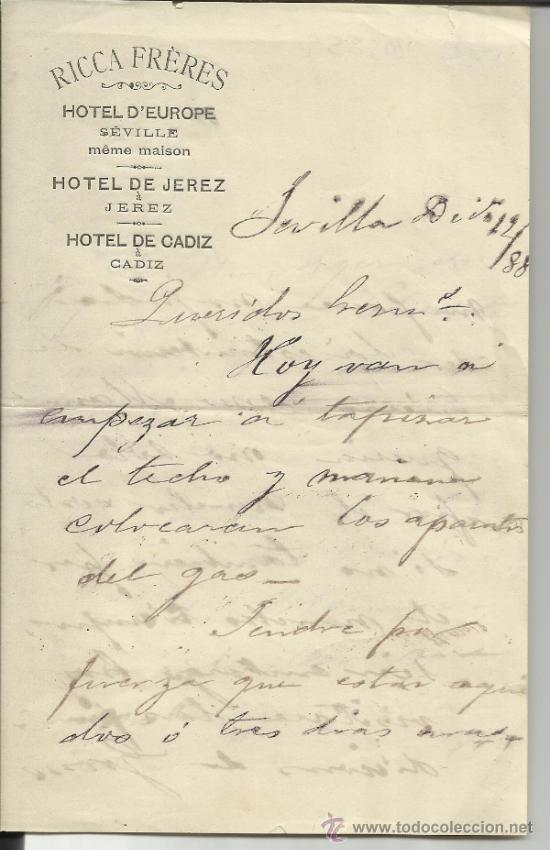 RICCA FRÈRES
HOTEL D'EUROPE
SÉVILLE
même maison
HOTEL DE JEREZ
à
JEREZ
HOTEL DE CADIZ
à
CADIZ
Sevilla Dic 12/88
Queridos herm.s
Hoy van á
empezar á tapizar
el techo y manana
colocaran los aparatos
del gas—
Tendre por
fuerza que estar aqui
dos ó tres dias mas
www.todocoleccion.net